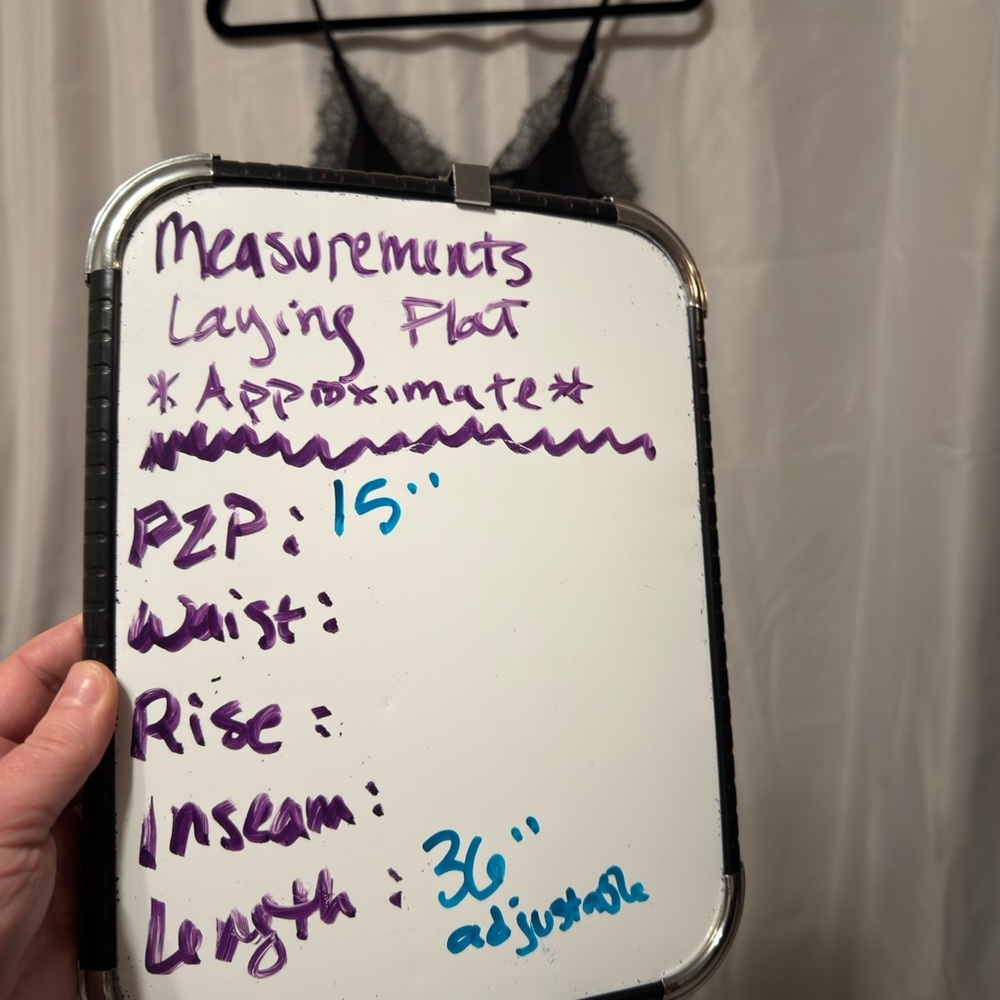 Measurements
Laying Flat
*Approximate*
P2P: 15"
Waist:
Rise:
Inseam:
Length: 36"
adjustable